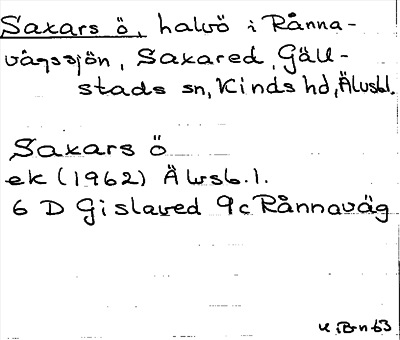 Saxars ö, halvö i Rånna-
vågssjön, Saxared, Gäll-
stads sn, Kinds hd, Älvsbl.
Saxars ö
ek (1962) Älvsb.l.
6 D Gislaved 9c Rånnaväg
KiBn 63